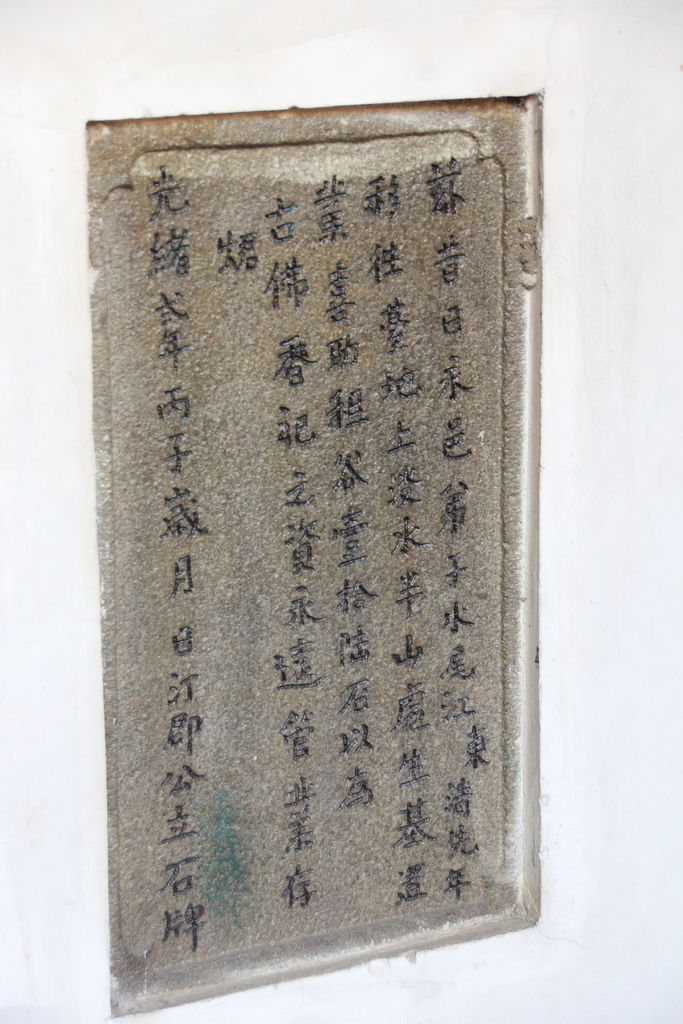 茲昔日永邑弟子水尾江東清先年
移徃臺地上淡水半山處生基置
業喜助租谷壹拾陸石以為
古佛香祀之資永遠管業存
炤
光緒弍年丙子歲月日汀郡公立石牌